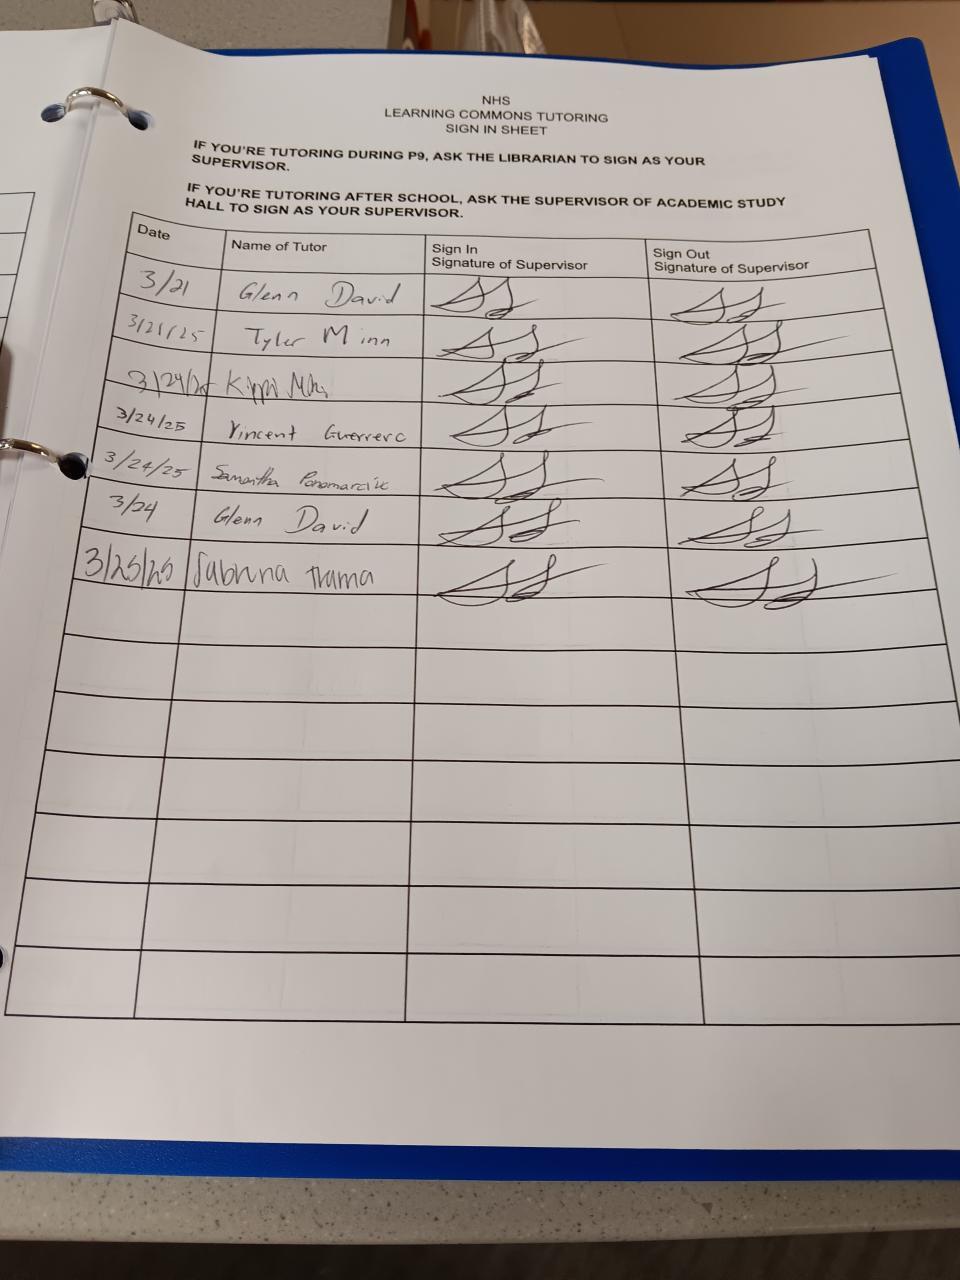 NHS
LEARNING COMMONS TUTORING
SIGN IN SHEET
IF YOU'RE TUTORING DURING P9, ASK THE LIBRARIAN TO SIGN AS YOUR
SUPERVISOR.
IF YOU'RE TUTORING AFTER SCHOOL, ASK THE SUPERVISOR OF ACADEMIC STUDY
HALL TO SIGN AS YOUR SUPERVISOR.
Date Name of Tutor Sign In Signature of Supervisor Sign Out Signature of Supervisor
3/21 Glenn David
3/21/25 Tyler Minn
3/24/25
3/24/25 Vincent Guerrero
3/24/25 Samantha
3/24 Glenn David
3/25/25 Sabrina